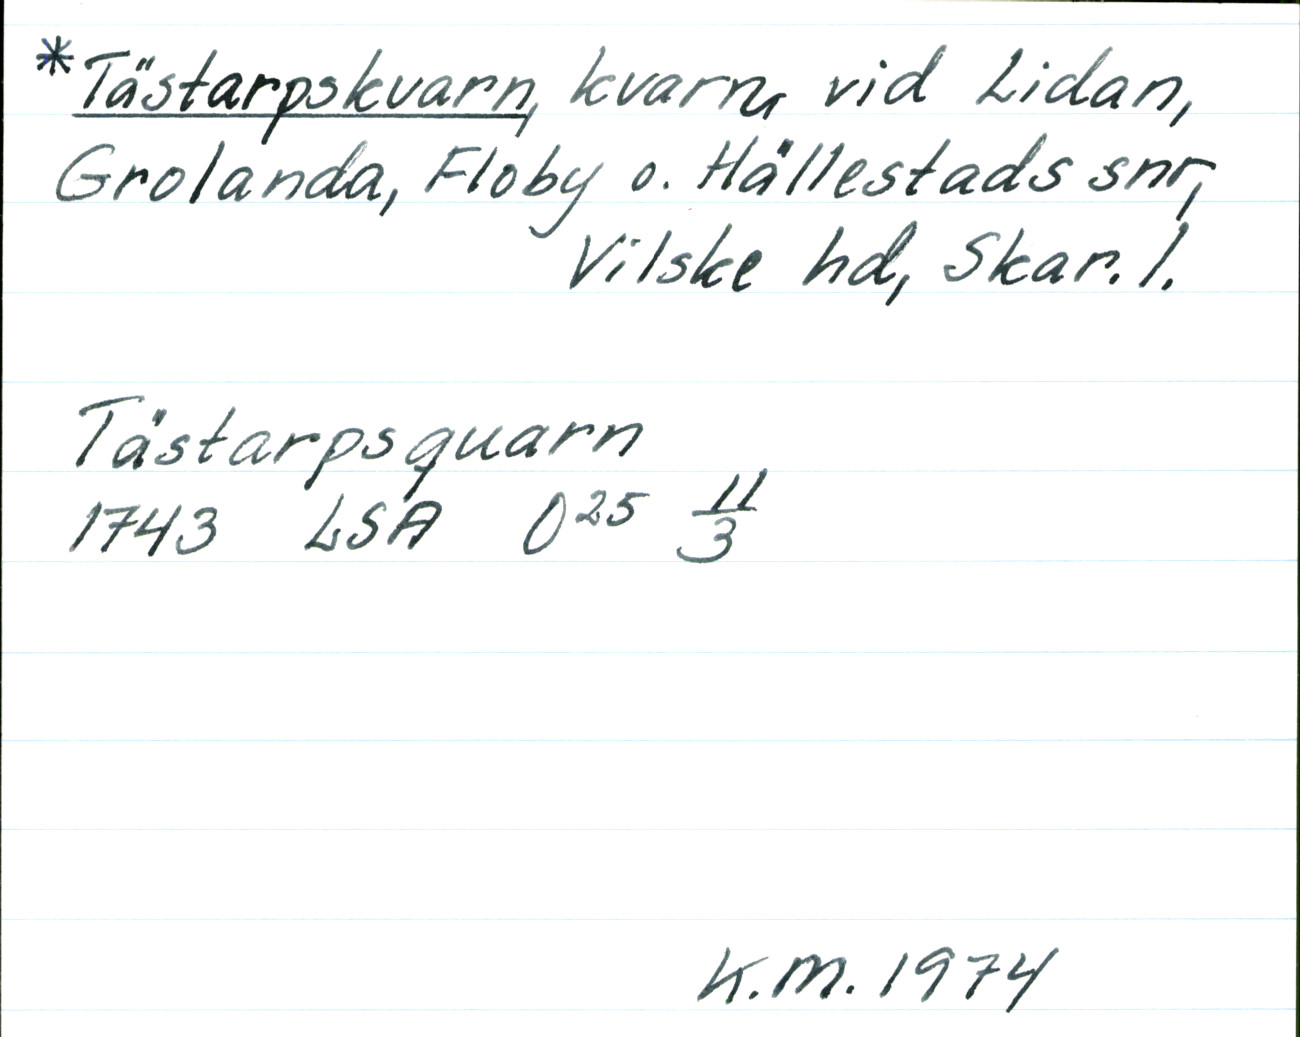 *Tästarpskvarn, kvarn, vid Lidan,
Grolanda, Floby o. Hällestads snr,
Vilske hd, Skar. l.
Tästarpsquarn
1743 LSA O25 11/3
K.M. 1974